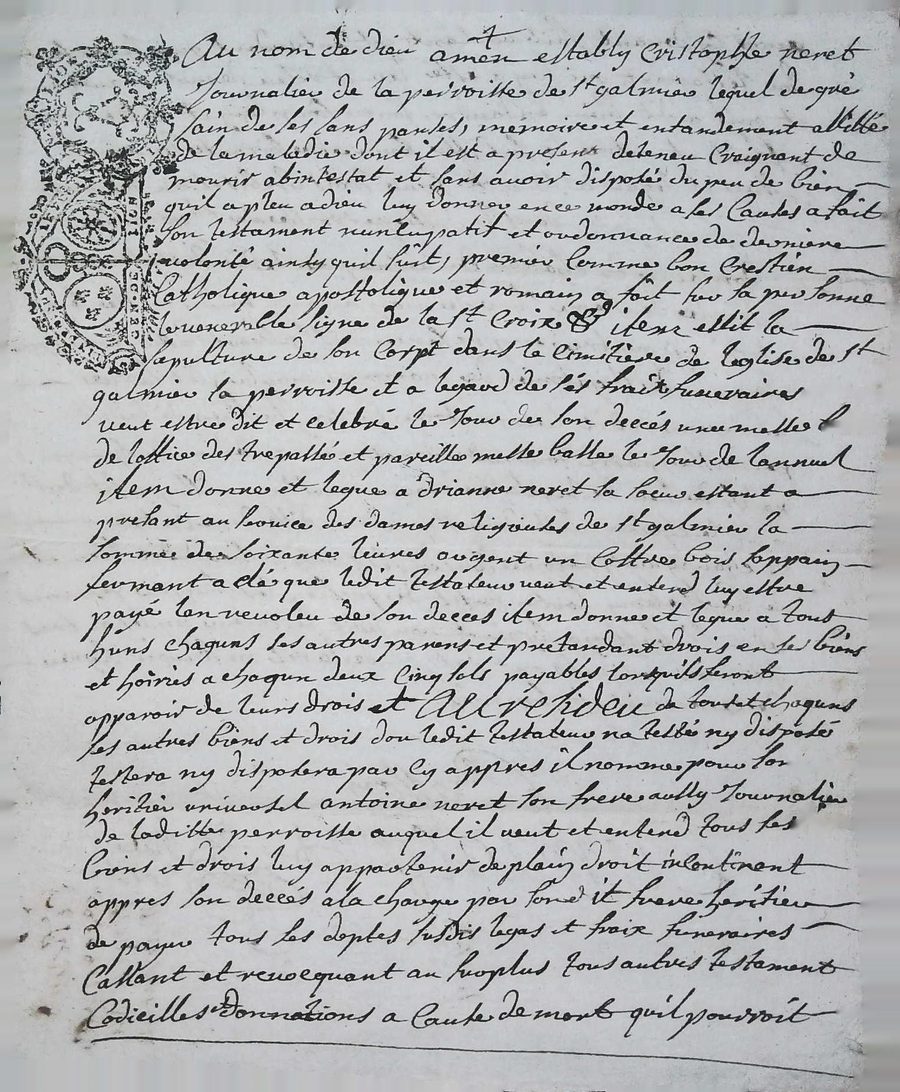 Au nom de dieu amen estably Cristophe neret
Journalier de la perroisse de st galmier lequel de gré
sain de ses sans panses, memoire et entandement
de la maladie dont il est a present deteneu Craignant de
mourir abintestat et sans avoir disposé du peu de bien
quil a pleu a dieu luy donner en ce monde a ses Causes a fait
son testament nuncupatif et ordonnance de derniere
volonté ainsy quil suit, premier Comme bon Crestien
Catholique apostolique et romain a fait sur sa personne
le venerable signe de la ste Croix item eslit la
sapulture de son Corps dans le Cimitiere de leglise de st
galmier sa perroisse et a legard de ses fraix funeraires
veut estre dit et celebré le Jour de son deccés une messe
de loffice des trepassé et pareille messe basse le Jour de lannuel
item donne et legue a drianne neret sa soeur estant a
presant au service des dames religieuses de st galmier la
somme de soixante livres argent un Coffre bois sappain
fermant a clé que ledit testateur veut et entend luy estre
payé lan revoleu de son decces item donne et legue a tous
huns chaquns ses autres parens et pretandant drois en se biens
et hoiries a chaqun deux Cinq sols payables lorsquils feront
apparoir de leurs drois et Au resideu de tous et chaquns
ses autres biens et drois dou ledit testateur na testé ny disposé
testera ny disposera par cy appres il nomme pour son
heritier universel antoine neret son frere aussy Journalier
de laditte perroisse auquel il veut et entend tous ses
biens et drois luy appartenir de plain droit incontinent
appres son deccés a la charge par sond it frere heritier
de payer tous ses deptes susdis legas et fraix funeraires
Cassant et revocquant au surplus tous autres testament
Codicilles donnations a Cause de mort qu'il pourroit